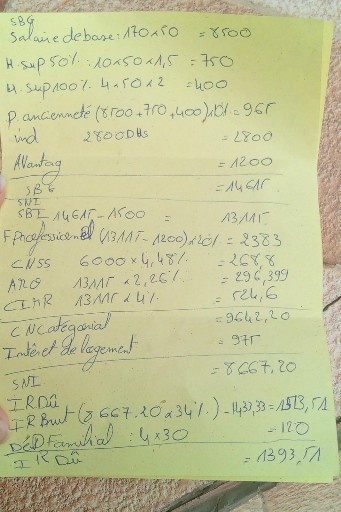 SBG
Salaire de base : 170 x 50 = 8500
H. sup 50% : 10 x 50 x 1,5 = 750
H. sup 100% 4 x 50 x 2 = 400
P. ancienneté (8500+750+400)x10% = 965
ind 2800 Dhs = 2800
Avantag = 1200
SBG = 14615
SNI
SBI 14615 - 1500 = 13115
F professionnel (13115 - 1200) x 20% = 2383
CNSS 6000 x 4,48% = 268,8
AMO 13115 x 2,26% = 296,399
CIMR 13115 x 4% = 524,6
CN Catégorial = 9642,20
Intérêt de logement = 975
= 8667,20
SNI
IR Dû
IR Brut (8 667.20 x 34%) - 1433,33 = 1513,51
Déd Familial : 4 x 30 = 120
IR Dû = 1393,51